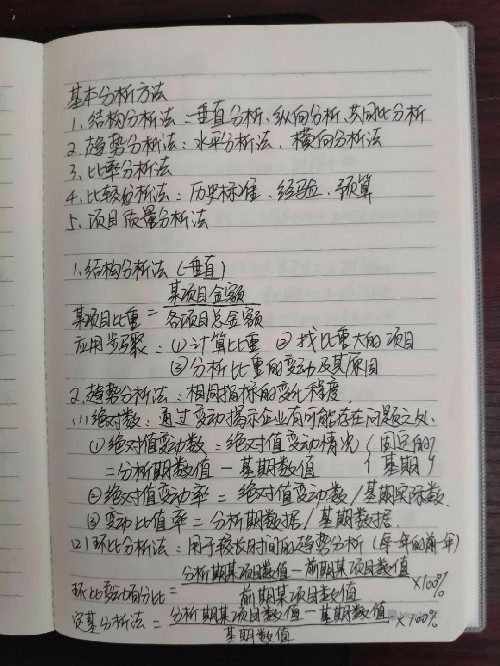 基本分析方法
1、结构分析法：垂直分析、纵向分析、共同比分析
2、趋势分析法：水平分析法、横向分析法
3、比率分析法
4、比较分析法：历史标准、经验、预算
5、项目质量分析法
1、结构分析法（垂直）
某项目比重 = 某项目金额 / 各项目总金额
应用步骤：①计算比重 ②找比重大的项目
③分析比重的变动及其原因
2、趋势分析法：相同指标的变化程度
(1)绝对数：通过变动揭示企业有可能存在问题之处
①绝对值变动数：绝对值变动情况（固定的
= 分析期数值 - 基期数值 基期）
②绝对值变动率 = 绝对值变动数 / 基期实际数
③变动比值率 = 分析期数据 / 基期数据
(2)环比分析法：用于较长时间的趋势分析（每一年的前一年）
环比变动百分比 = 分析期某项目数值 - 前期某项目数值 / 前期某项目数值 ×100%
定基分析法 = 分析期某项目数值 - 基期数值 / 基期数值 ×100%